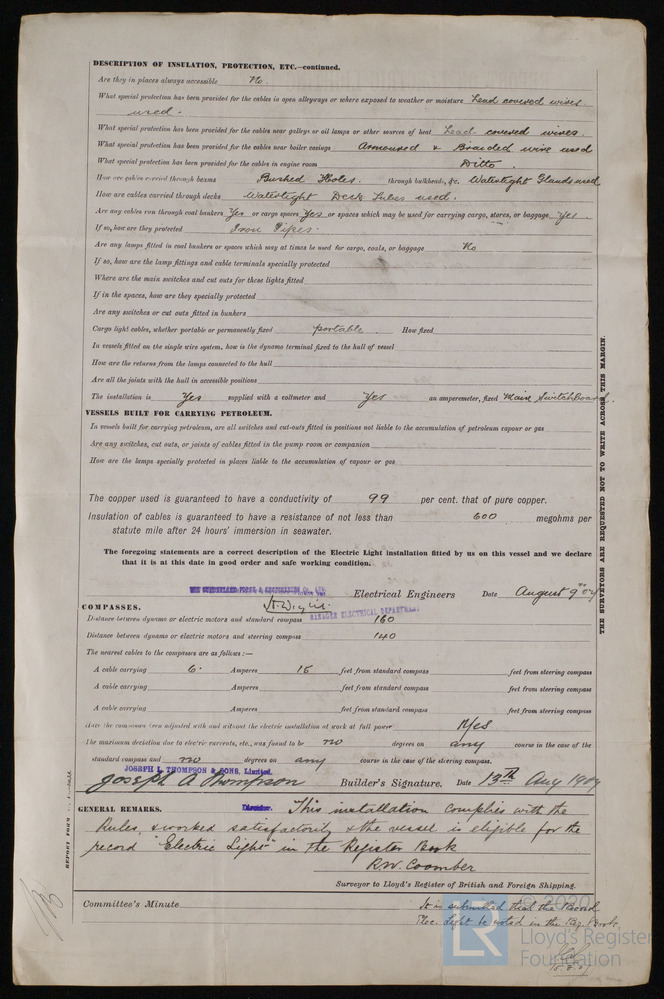 DESCRIPTION OF INSULATION, PROTECTION, ETC.—continued.
Are they in places always accessible No.
What special protection has been provided for the cables in open alleyways or where exposed to weather or moisture Lead covered wires
used.
What special protection has been provided for the cables near galleys or oil lamps or other sources of heat Lead covered wires
What special protection has been provided for the cables near boiler casings Armoured & Braided wire used
What special protection has been provided for the cables in engine room Ditto
How are cables carried through beams Bushed Holes. through bulkheads, &c. Watertight Glands used
How are cables carried through decks Watertight Deck Tubes used.
Are any cables run through coal bunkers Yes or cargo spaces Yes or spaces which may be used for carrying cargo, stores, or baggage Yes.
If so, how are they protected Iron Pipes.
Are any lamps fitted in coal bunkers or spaces which may at times be used for cargo, coals, or baggage No
If so, how are the lamp fittings and cable terminals specially protected
Where are the main switches and cut outs for these lights fitted
If in the spaces, how are they specially protected
Are any switches or cut outs fitted in bunkers
Cargo light cables, whether portable or permanently fixed portable How fixed
In vessels fitted on the single wire system, how is the dynamo terminal fixed to the hull of vessel
How are the returns from the lamps connected to the hull
Are all the joints with the hull in accessible positions
The installation is Yes supplied with a voltmeter and Yes an amperemeter, fixed Main Switch Board.
VESSELS BUILT FOR CARRYING PETROLEUM.
In vessels built for carrying petroleum, are all switches and cut-outs fitted in positions not liable to the accumulation of petroleum vapour or gas
Are any switches, cut outs, or joints of cables fitted in the pump room or companion
How are the lamps specially protected in places liable to the accumulation of vapour or gas
The copper used is guaranteed to have a conductivity of 99 per cent. that of pure copper.
Insulation of cables is guaranteed to have a resistance of not less than 600 megohms per
statute mile after 24 hours' immersion in seawater.
The foregoing statements are a correct description of the Electric Light installation fitted by us on this vessel and we declare
that it is at this date in good order and safe working condition.
THE SUNDERLAND FORGE & ENGINEERING Co. LTD.
Electrical Engineers Date August 9
MANAGER ELECTRICAL DEPARTMENT
COMPASSES.
Distance between dynamo or electric motors and standard compass 160
Distance between dynamo or electric motors and steering compass 140
The nearest cables to the compasses are as follows:—
A cable carrying 6. Amperes 15 feet from standard compass feet from steering compass
A cable carrying Amperes feet from standard compass feet from steering compass
A cable carrying Amperes feet from standard compass feet from steering compass
Have the compasses been adjusted with and without the electric installation at work at full power Yes
The maximum deviation due to electric currents, etc., was found to be no degrees on any course in the case of the
standard compass and no degrees on any course in the case of the steering compass.
JOSEPH L. THOMPSON & SONS, Limited.
Joseph A Thompson Builder's Signature. Date 13th Aug
Director.
GENERAL REMARKS. This installation complies with the
Rules, & worked satisfactorily & the vessel is eligible for the
record "Electric Light" in the Register Book
R.W. Coomber
Surveyor to Lloyd's Register of British and Foreign Shipping.
Committee's Minute
It is submitted that the Record
Elec. Light be noted in the Reg. Book.
THE SURVEYORS ARE REQUESTED NOT TO WRITE ACROSS THIS MARGIN.
REPORT FORM
© 2020
LR
Lloyd's Register
Foundation